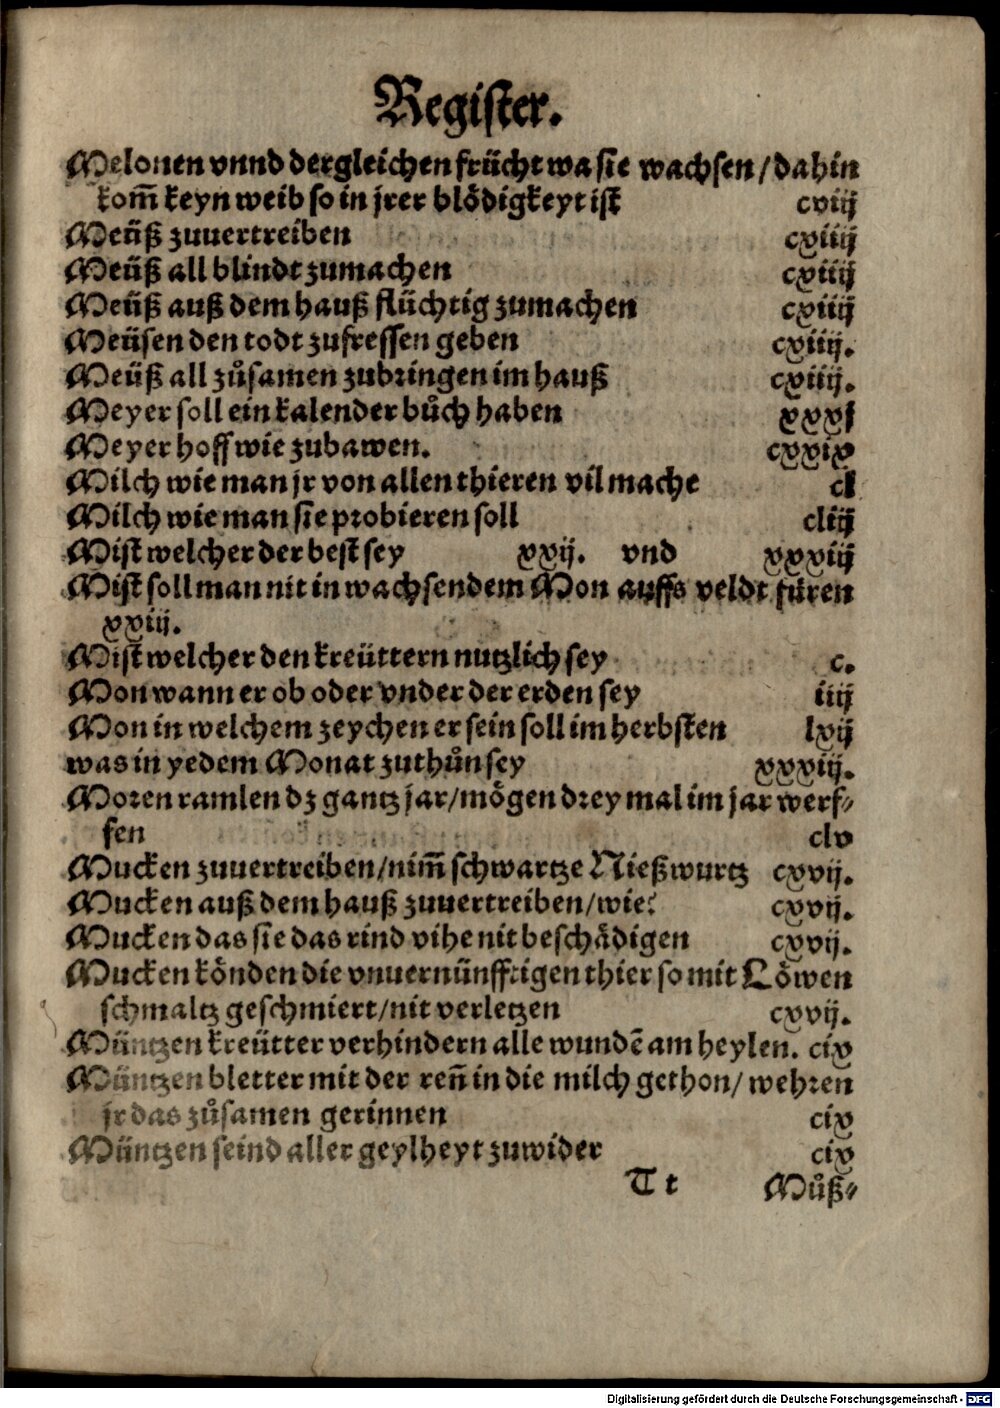 Register.
Melonen vnnd dergleichen frücht wa sie wachsen / dahin
kom̃ keyn weib so in jrer blödigkeyt ist cviij
Meüß zuuertreiben cxiiij
Meüß all blindt zumachen cxiiij
Meüß auß dem hauß flüchtig zumachen cxiiij
Meüsen den todt zufressen geben cxiiij.
Meüß all zůsamen zubringen im hauß cxiiij.
Meyer soll ein kalender bůch haben xxxj
Meyer hoff wie zubawen. cxxix
Milch wie man jr von allen thieren vil mache cl
Milch wie man sie probieren soll cliij
Mist welcher der best sey xxij. vnd xxxviij
Mist soll man nit in wachsendem Mon auffs veldt füren
xxiij.
Mist welcher den kreüttern nutzlich sey c.
Mon wann er ob oder vnder der erden sey iiij
Mon in welchem zeychen er sein soll im herbsten lxij
was in yedem Monat zuthůn sey xxxiij.
Moren ramlen dz gantz jar/mögen drey mal im jar werf⸗
fen clv
Mucken zuuertreiben/nim̃ schwartze Nießwurtz cxvij.
Mucken auß dem hauß zuuertreiben/wie? cxvij.
Mucken das sie das rind vihe nit beschädigen cxvij.
Mucken könden die vnuernünfftigen thier so mit Löwen
schmaltz geschmiert/nit verletzen cxvij.
Müntzen kreütter verhindern alle wundẽ am heylen. cix
Müntzen bletter mit der ren̄ in die milch gethon/ wehren
jr das zůsamen gerinnen cix
Müntzen seind aller geylheyt zuwider cix
T t Můß⸗
Digitalisierung gefördert durch die Deutsche Forschungsgemeinschaft - DFG